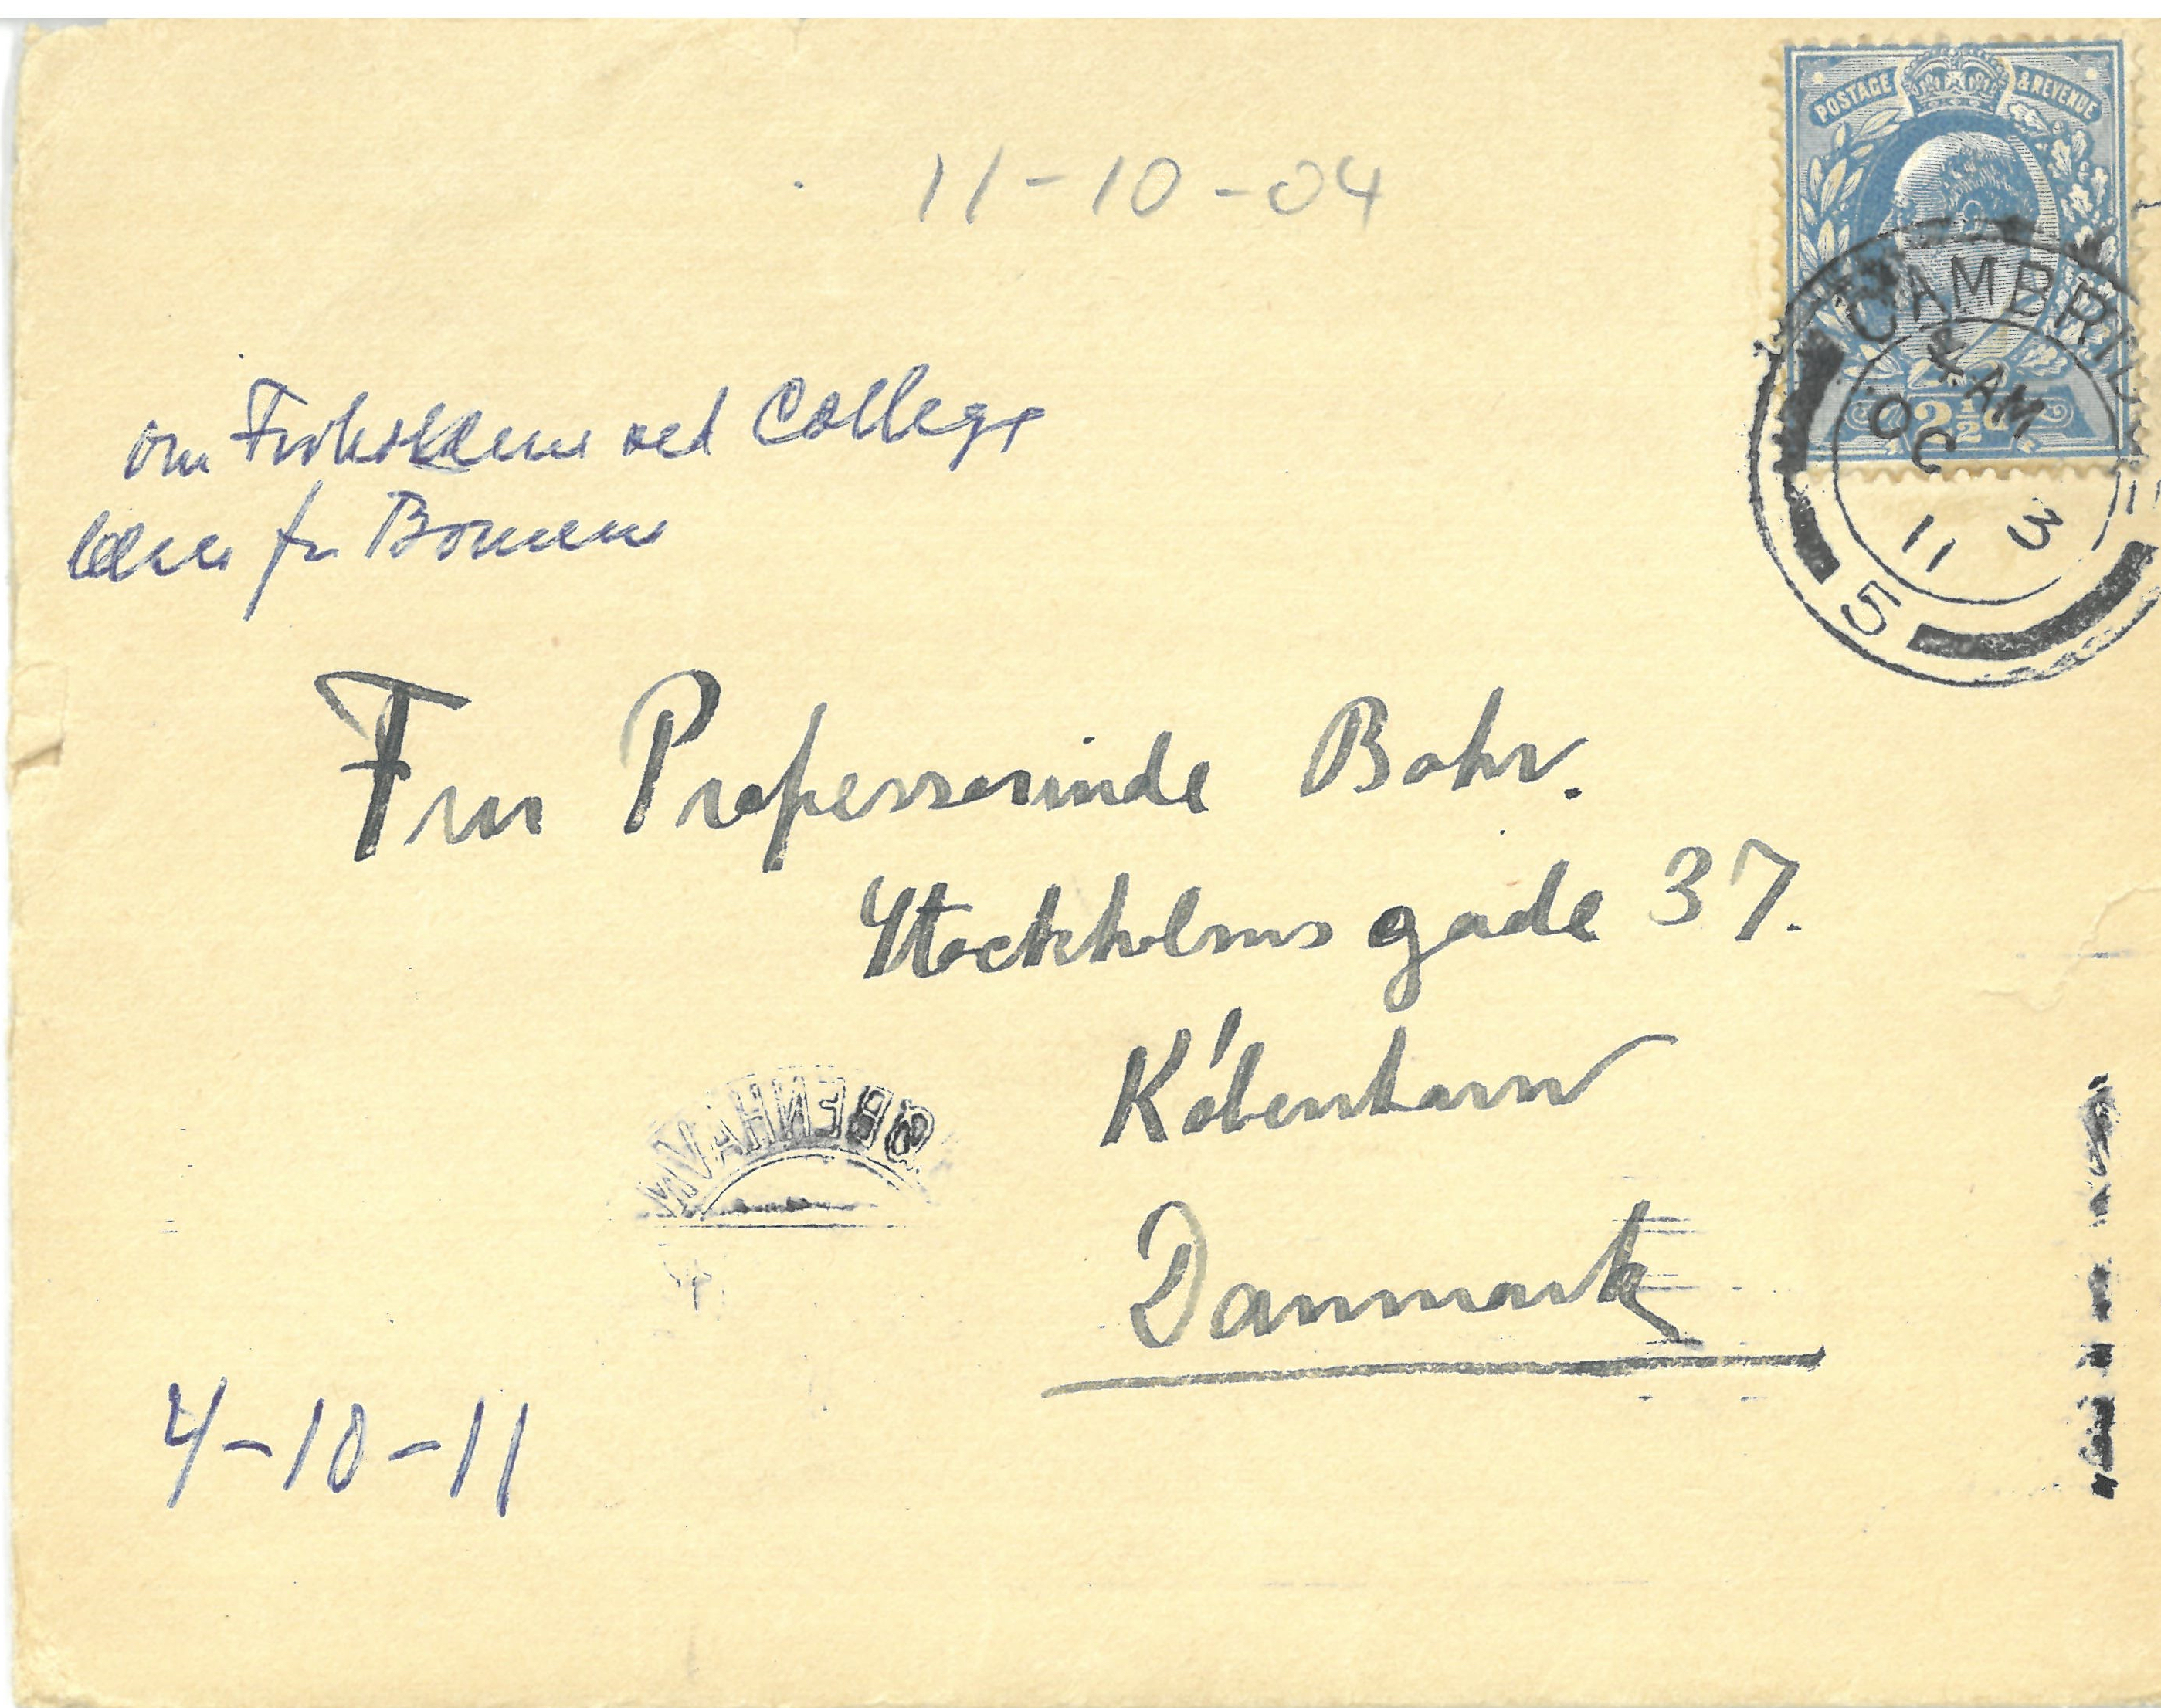 11-10-04
POSTAGE & REVENUE
2½
CAMBRID
AM
OC 3
11
5
om ved College
for
Fru Professorinde Bohr.
Stockholmsgade 37.
København
Danmark
ØBENHAVN
4-10-11